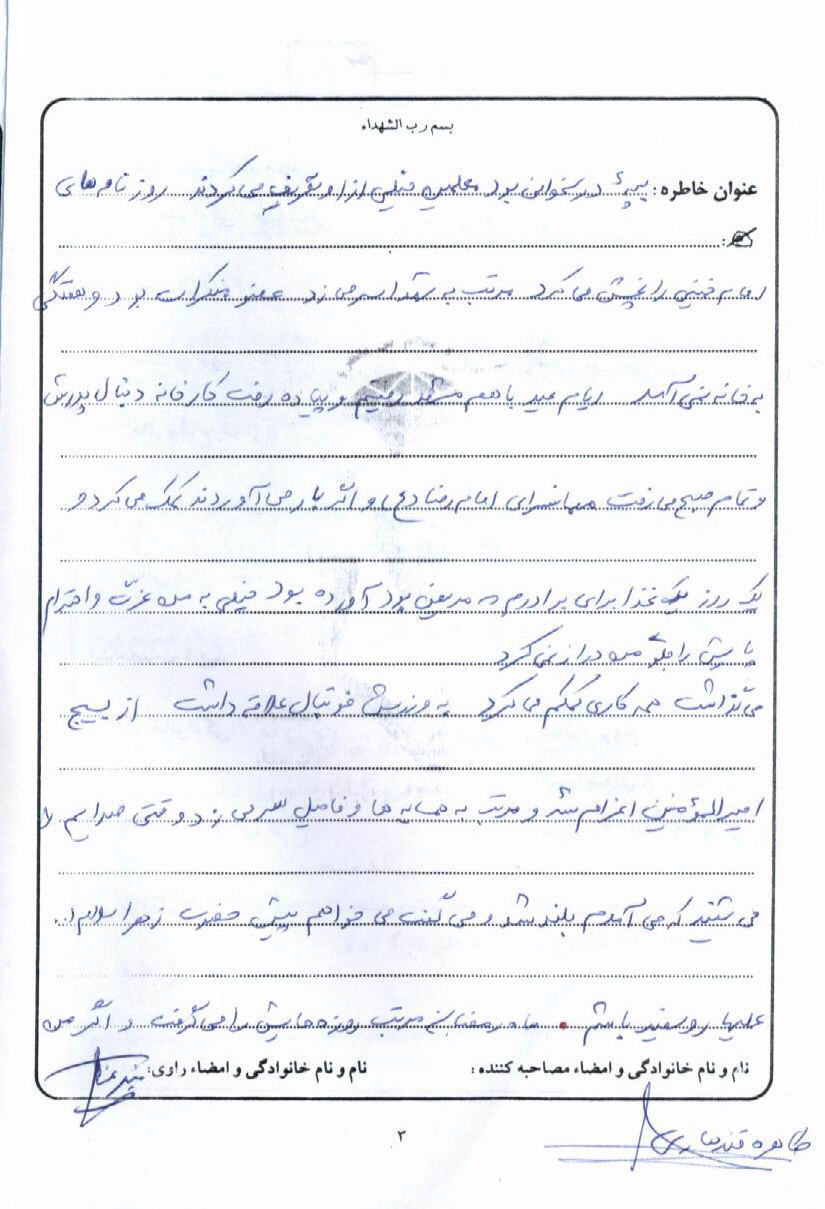 بسم رب الشهداء
عنوان خاطره: بچهٔ درسخوان بود معلمین خیلی از او تعریف می کردند روزنامه های
امام خمینی را پخش می کرد مرتب به شهدا سر می زد عضو منکرات بود و هفتگی
به خانه نمی آمد ایام عید با هم مشهد رفتیم و پیاده رفت کارخانه دنبال پدرش
و تمام صبح می رفت مهمانسرای امام رضا (ع) و اگر بار می آوردند کمک می کرد و
یک روز یک غذا برای برادرم که مریض بود آورده بود خیلی به من عزت و احترام
پایش را جلو من دراز نمی کرد
می گذاشت همه کاری کمکم می کرد به ورزش فوتبال علاقه داشت از بسیج
امیرالمؤمنین اعزام شد و مرتب به همسایه ها و فامیل سر می زد وقتی صدایم را
می شنید که می آمدم بلند می شد و می گفت می خواهم پیش حضرت زهرا سلام ا..
علیها روسفید باشم. ماه رمضان مرتب روزه هایش را می گرفت و اگر من
نام و نام خانوادگی و امضاء مصاحبه کننده: نام و نام خانوادگی و امضاء راوی:
طاهره
۳